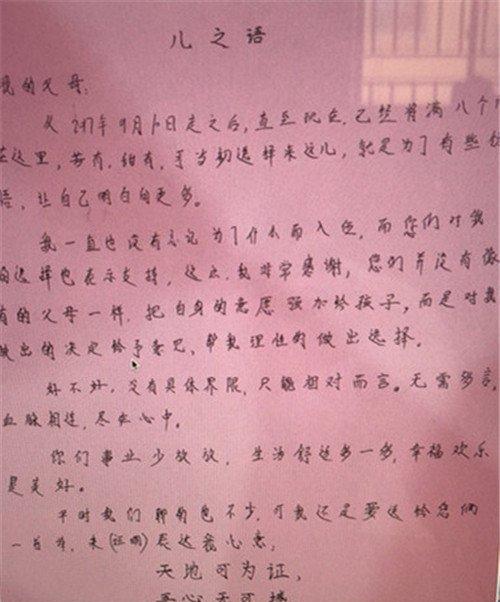 儿之语
的父母:
从2017年9月10日走之后,直至现在,已然将满八个
在这里,苦有,甜有,当初选择来这儿,就是为了有些
悟,让自己明白的更多。
我一直也没有忘记为了什么而入伍,而您们对我
的选择也表示支持,这点,我非常感谢,您们并没有像
有的父母一样,把自身的意愿强加给孩子,而是对我
做出的决定给予意见,帮我理性的做出选择。
好不好,没有具体界限,只能相对而言。无需多言
血脉相连,尽在心中。
你们事业少放放,生活舒适多一多,幸福欢乐
是美好。
平时我们聊的也不少,可我还是要送给您俩
一首,来(证明)表达我心意:
天地可为证,